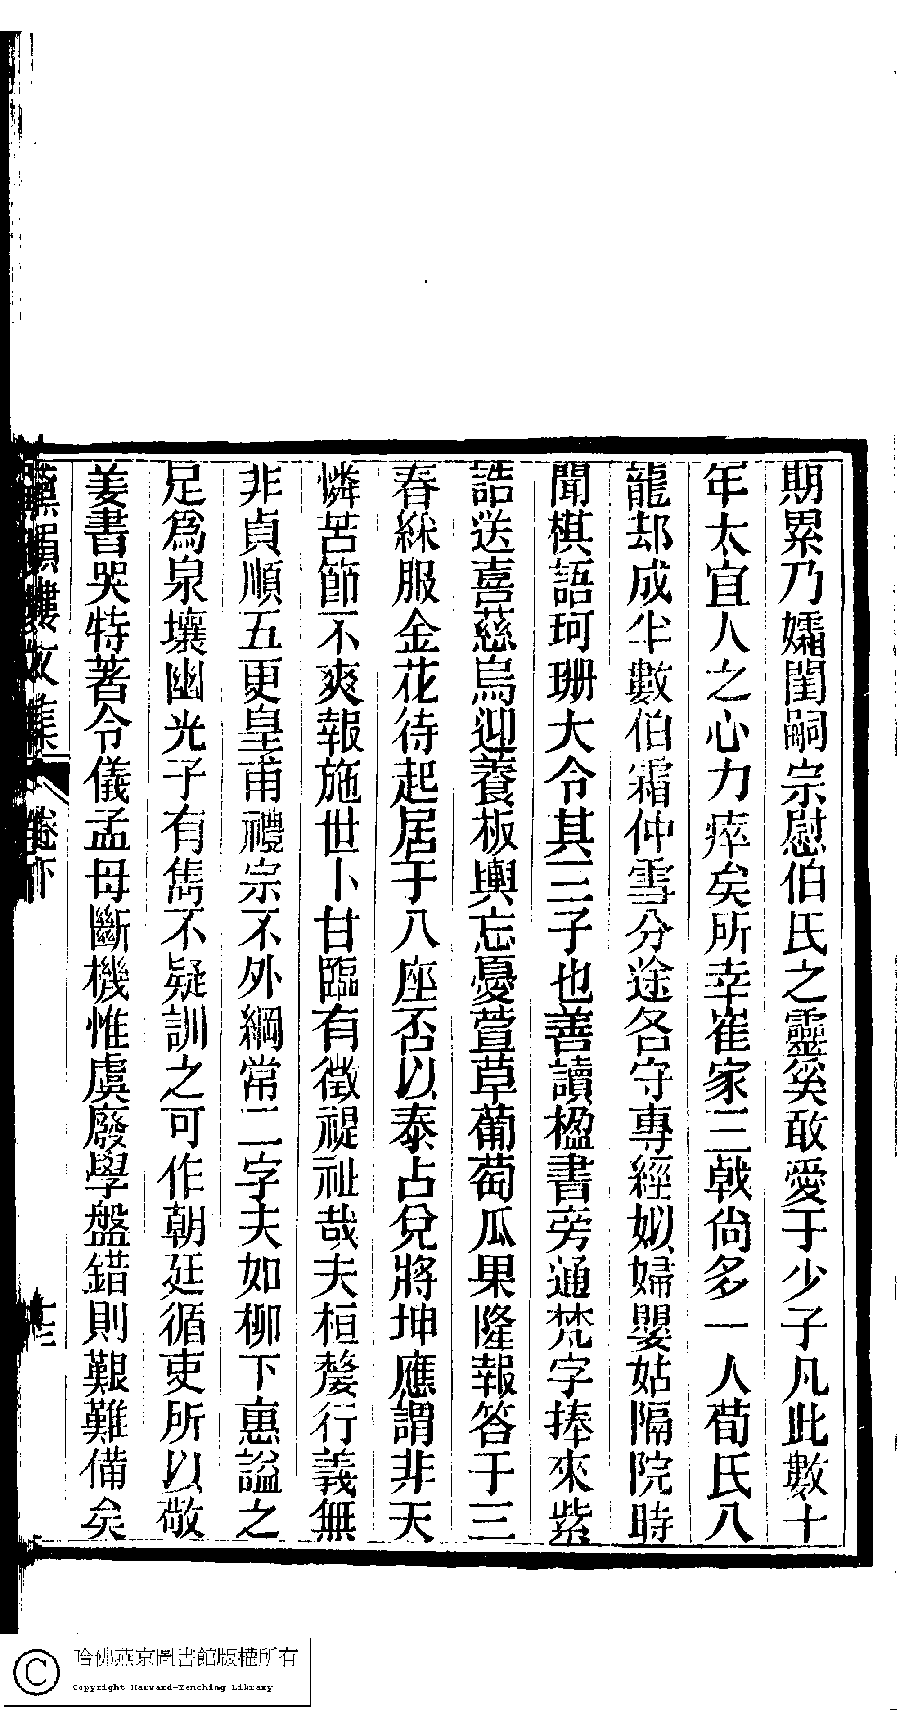 期累乃孀閨嗣宗慰伯氏之靈奚敢愛于少子凡此數十
年太宜人之心力瘁矣所幸崔家三戟尙多一人荀氏八
龍却成半數伯霜仲雪分途各守專經姒婦嬰姑隔院時
聞棋語珂珊大令其三子也善讀楹書旁通梵字捧來紫
誥送喜慈烏迎養板輿忘憂萱草葡萄瓜果隆報答于三
春綵服金花待起居于八座否以泰占兌將坤應謂非天
憐苦節不爽報施世卜甘臨有徵禔祉哉夫桓嫠行義無
非貞順五更皇甫禮宗不外綱常二字夫如柳下惠諡之
足爲泉壤幽光子有雋不疑訓之可作朝廷循吏所以敬
姜書哭特著令儀孟母斷機惟虞廢學盤錯則艱難備矣
文集 卷下 十三
哈佛燕京圖書館版權所有
Copyright Harvard-Yenching Library